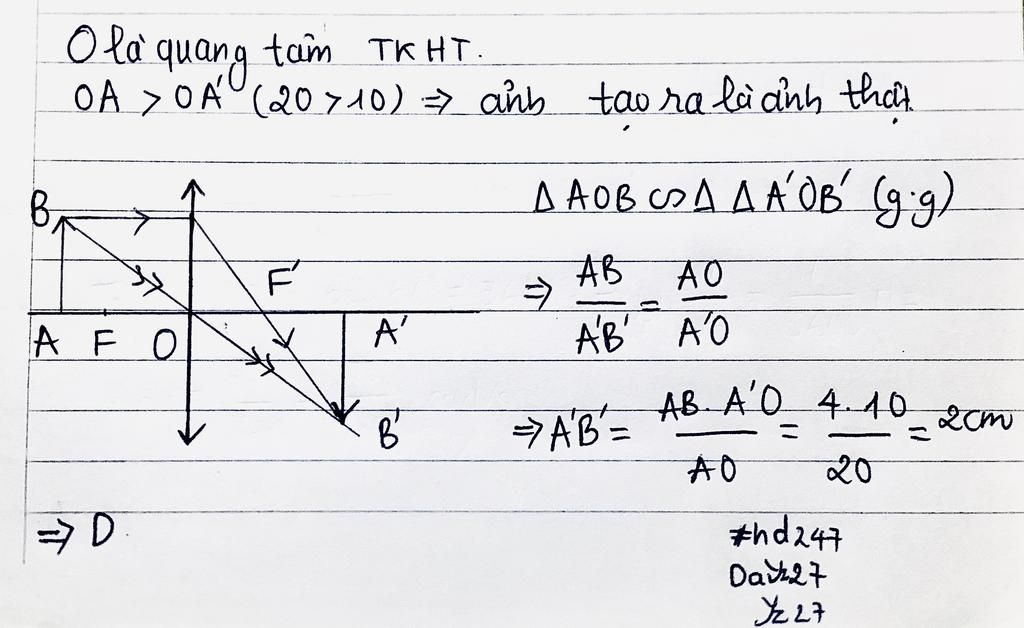 O là quang tâm TKHT.
OA > OA' (20 > 10) => ảnh tạo ra là ảnh thật
B
F'
A F O
A'
B'
Δ AOB ∽ Δ Δ A'OB' (g.g)
=> AB/A'B' = AO/A'O
=> A'B' = AB. A'O/AO = 4. 10/20 = 2cm
=> D
#hd247